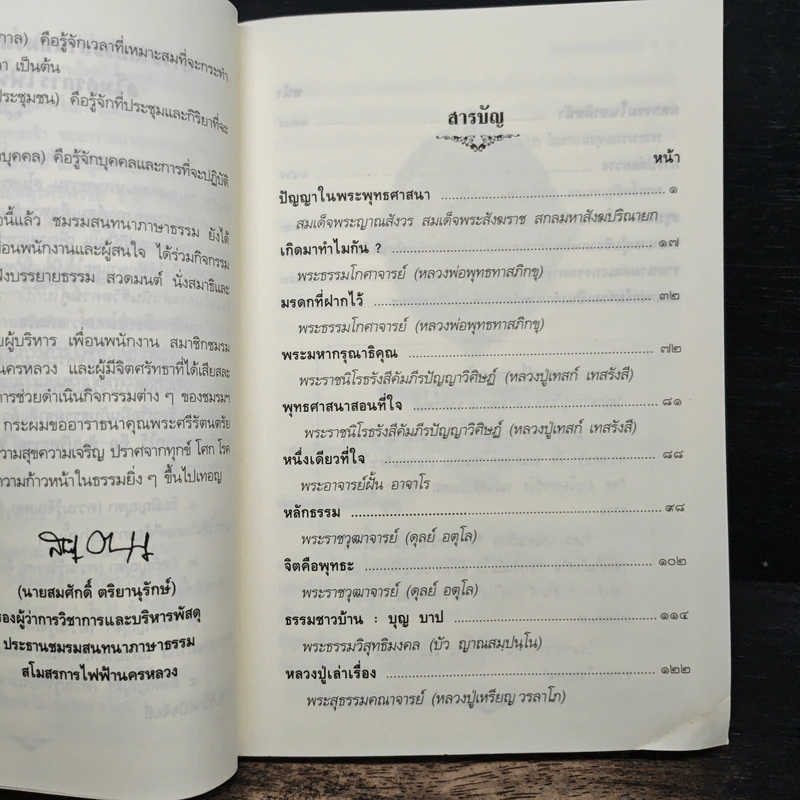 กาล) คือรู้จักเวลาที่เหมาะสมที่จะกระทำ
เป็นต้น
ประชุมชน) คือรู้จักที่ประชุมและกิริยาที่จะ
บุคคล) คือรู้จักบุคคลและการที่จะปฏิบัติ
นี้แล้ว ชมรมสนทนาภาษาธรรม ยังได้
พื่อนพนักงานและผู้สนใจ ได้ร่วมกิจกรรม
ฟังบรรยายธรรม สวดมนต์ นั่งสมาธิและ
ผู้บริหาร เพื่อนพนักงาน สมาชิกชมรม
นครหลวง และผู้มีจิตศรัทธาที่ได้เสียสละ
การช่วยดำเนินกิจกรรมต่าง ๆ ของชมรมฯ
กระผมขออาราธนาคุณพระศรีรัตนตรัย
วามสุขความเจริญ ปราศจากทุกข์ โศก โรค
ความก้าวหน้าในธรรมยิ่ง ๆ ขึ้นไปเทอญ
(นายสมศักดิ์ ตริยานุรักษ์)
องผู้ว่าการวิชาการและบริหารพัสดุ
ประธานชมรมสนทนาภาษาธรรม
สโมสรการไฟฟ้านครหลวง
สารบัญ
หน้า
ปัญญาในพระพุทธศาสนา ๑
สมเด็จพระญาณสังวร สมเด็จพระสังฆราช สกลมหาสังฆปริณายก
เกิดมาทำไมกัน ? ๑๗
พระธรรมโกศาจารย์ (หลวงพ่อพุทธทาสภิกขุ)
มรดกที่ฝากไว้ ๓๒
พระธรรมโกศาจารย์ (หลวงพ่อพุทธทาสภิกขุ)
พระมหากรุณาธิคุณ ๗๒
พระราชนิโรธรังสีคัมภีรปัญญาวิศิษฏ์ (หลวงปู่เทสก์ เทสรังสี)
พุทธศาสนาสอนที่ใจ ๘๑
พระราชนิโรธรังสีคัมภีรปัญญาวิศิษฏ์ (หลวงปู่เทสก์ เทสรังสี)
หนึ่งเดียวที่ใจ ๘๘
พระอาจารย์ฝั้น อาจาโร
หลักธรรม ๙๘
พระราชวุฒาจารย์ (ดุลย์ อตุโล)
จิตคือพุทธะ ๑๐๒
พระราชวุฒาจารย์ (ดุลย์ อตุโล)
ธรรมชาวบ้าน : บุญ บาป ๑๑๔
พระธรรมวิสุทธิมงคล (บัว ญาณสมฺปนฺโน)
หลวงปู่เล่าเรื่อง ๑๒๒
พระสุธรรมคณาจารย์ (หลวงปู่เหรียญ วรลาโภ)